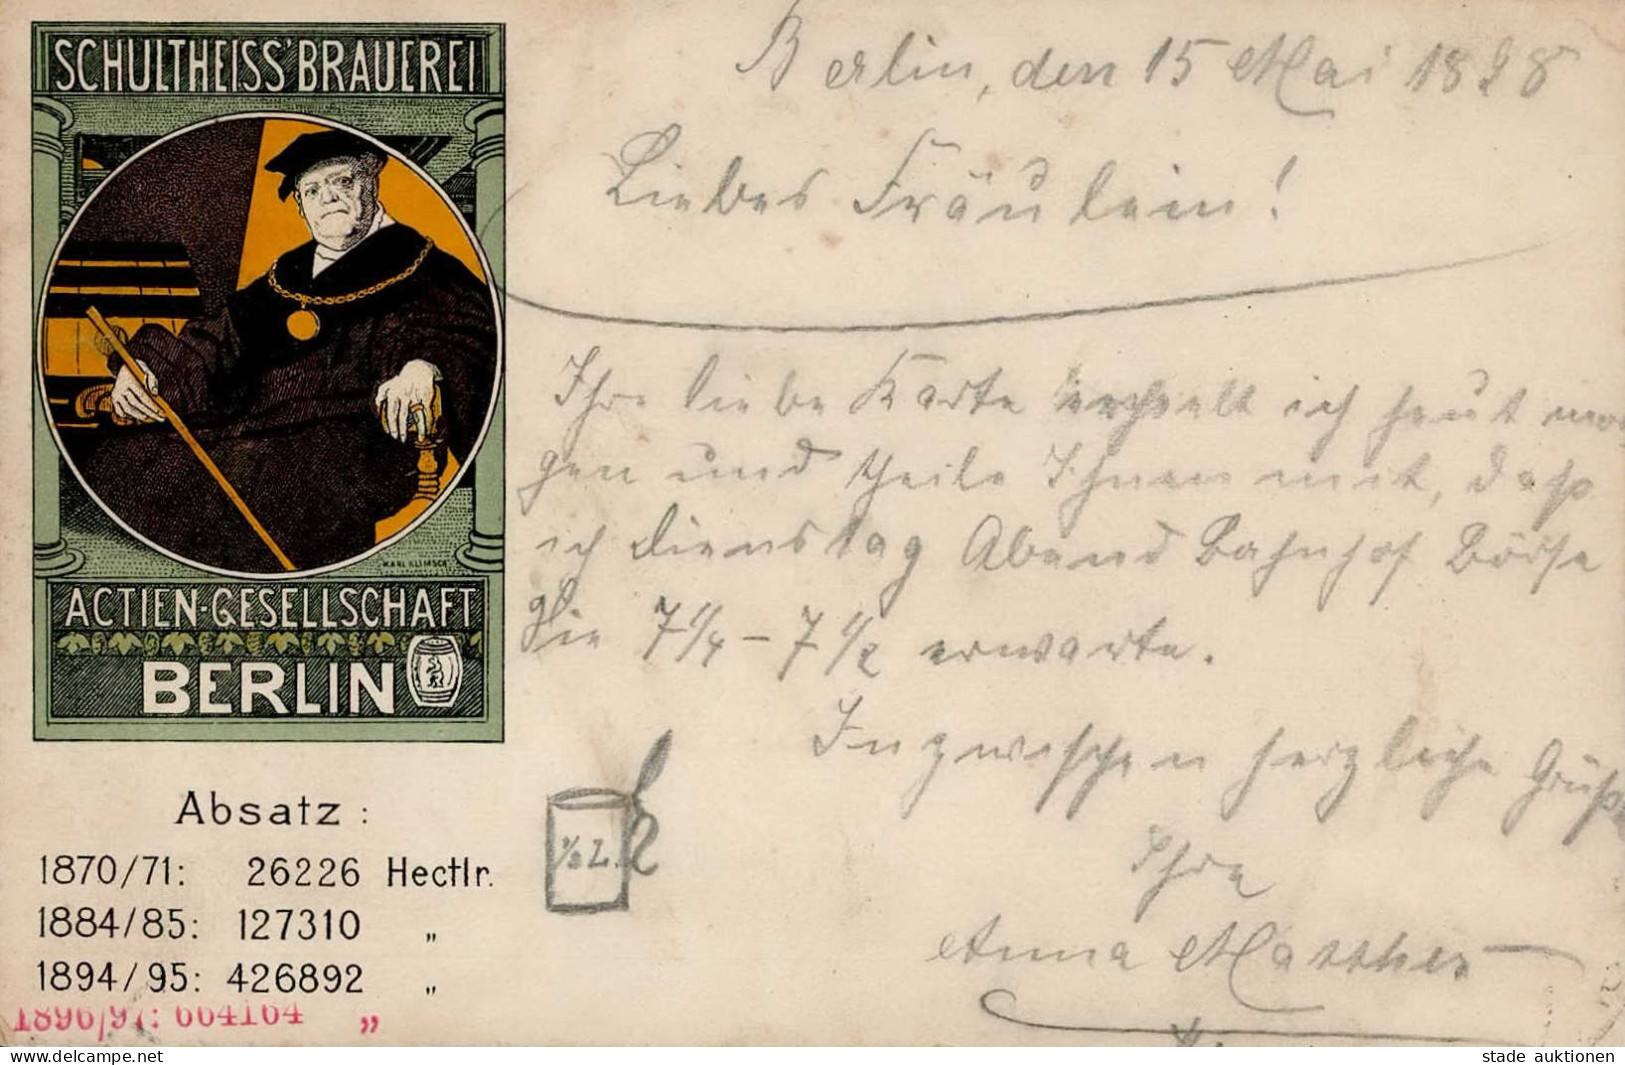 SCHULTHEISS' BRAUEREI
KARL KLIMSCH
ACTIEN-GESELLSCHAFT
BERLIN
Absatz :
1870/71: 26226 Hectlr.
1884/85: 127310 „
1894/95: 426892 „
1896/97: 664164 „
Berlin, den 15 Mai 1898
Liebes Fräulein!
Ihre liebe Karte erhielt ich heut mor
gen und theile Ihnen mit, daß
ich Dienstag Abend Bahnhof Börse
Sie 7 1/4 – 7 1/2 erwarte.
Inzwischen herzliche Grüße
Ihre
Anna Matthes
1/2 L.
www.delcampe.net
stade auktionen